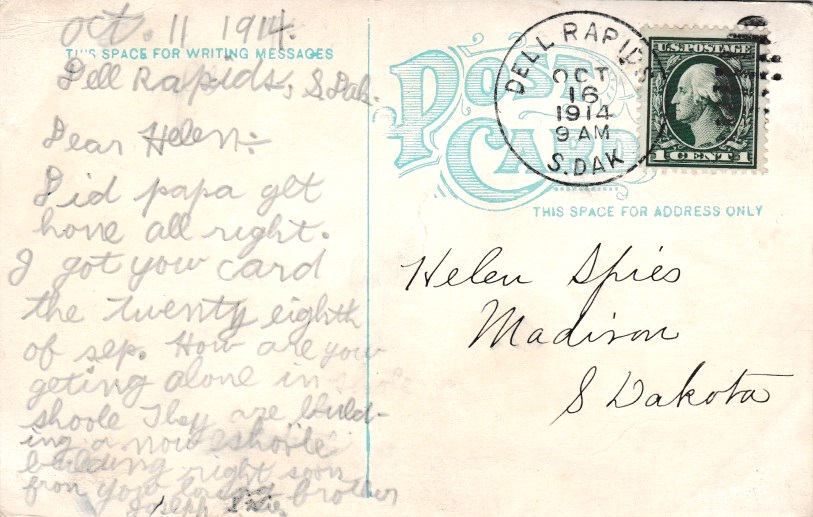 Oct. 11 1914.
THIS SPACE FOR WRITING MESSAGES
Dell Rapids, S. Dak.
Dear Helen:-
Did papa get
home all right.
I got your card
the twenty eighth
of sep. How are you
geting alone in
shoole They are build-
ing a now shoole
building right soon
fron your loving brother
Joseph
POST CARD
DELL RAPIDS
OCT
16
1914
9 AM
S. DAK
U.S. POSTAGE
1 CENT 1
THIS SPACE FOR ADDRESS ONLY
Helen Spies
Madison
S Dakota